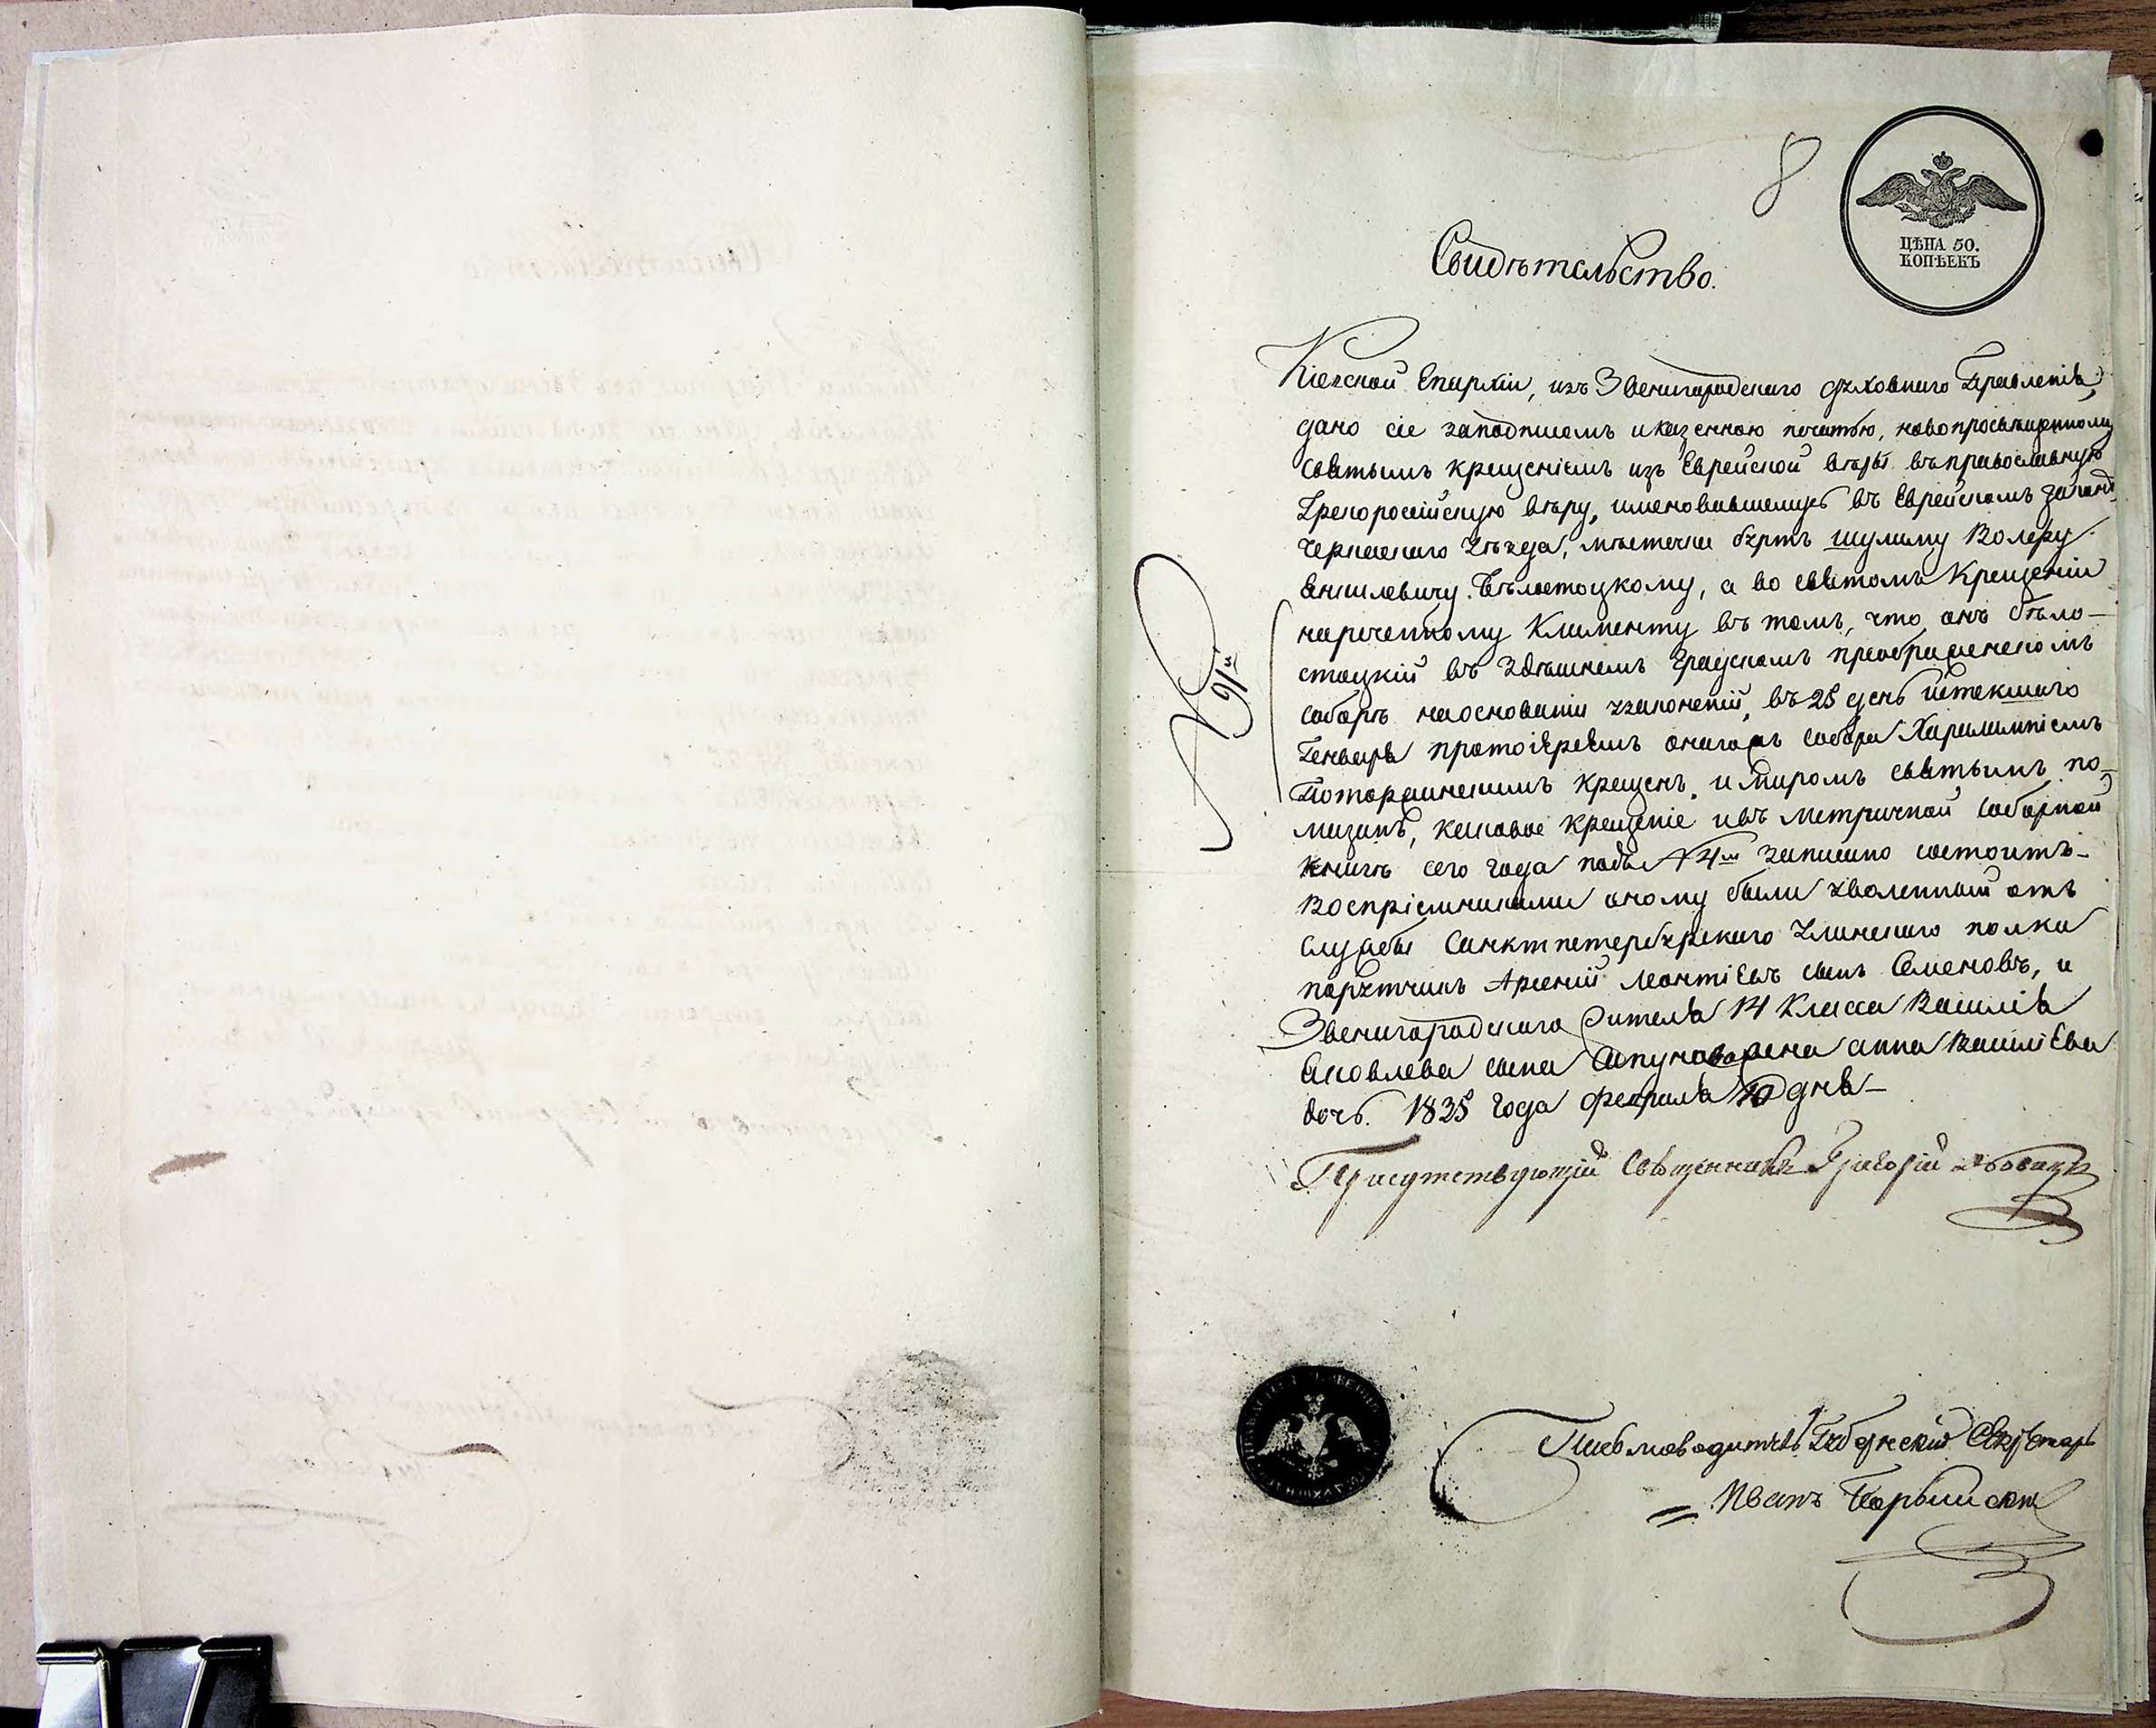 8
ЦѢНА 50.
КОПѢЕКЪ
Свидѣтельство.
Кіевской Епархіи, изъ Звенигородскаго духовнаго Правленія,
дано сіе заподписомъ иказенною печатью, новопросвѣщенному
святымъ крещеніемъ изъ Еврейской вѣры въправославную
Грекороссійскую вѣру, именовавшемусь въ Еврейскомъ законѣ
Черкаскаго уѣзда, мѣстечка буртъ шулиму Волеру
Аншлевичу Бѣлостоцкому, а во святомъ Крещеніи
нареченному Клименту въ томъ, что онъ бѣло-
стоцкій въ здѣшнемъ градскомъ преображенскомъ
соборѣ наоснованіи узаконеній, въ 25 день истекшаго
Генваря протоіереемъ онагожъ собора Харалампіемъ
крещенъ, и миромъ святымъ по-
мазанъ, каковое крещеніе ивъ метричной соборной
книгѣ сего года подъ N 4м записано состоитъ-
Воспріемниками оному были уволенный отъ
службы Санктпетербурскаго уланскаго полка
порутчикъ Арсеній леонтіевъ сынъ Семеновъ, и
Звенигородскаго жителя 14 класса Василія
Яковлева сына жена анна Василіева
дочь. 1835 года февраля 10 дня-
Присутствующій Священникъ Григорій
N 91й
Письмоводитель Губернскій Секретарь
Иванъ